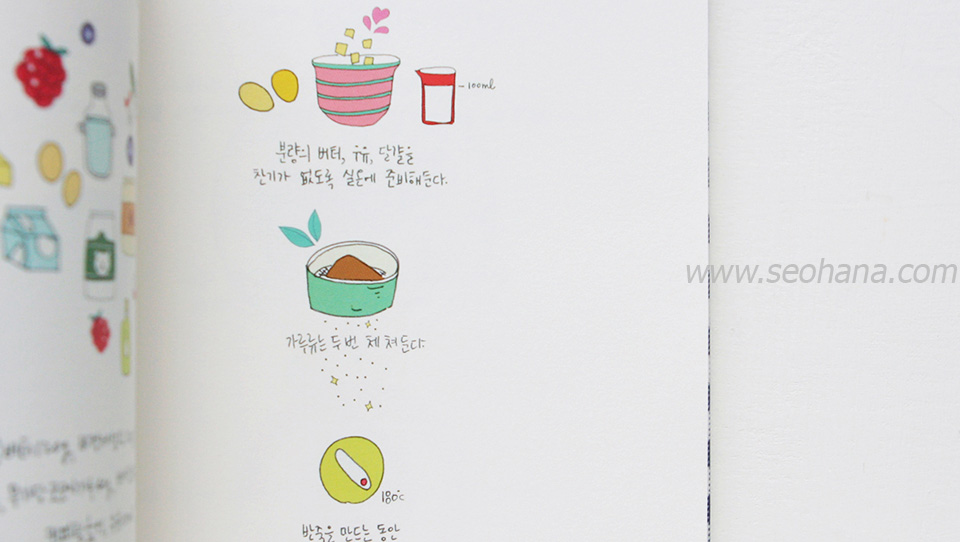 100ml
분량의 버터, 우유, 달걀을
찬기가 없도록 실온에 준비해둔다.
www.seohana.com
가루류는 두번 체 쳐둔다.
180℃
반죽을 만드는 동안